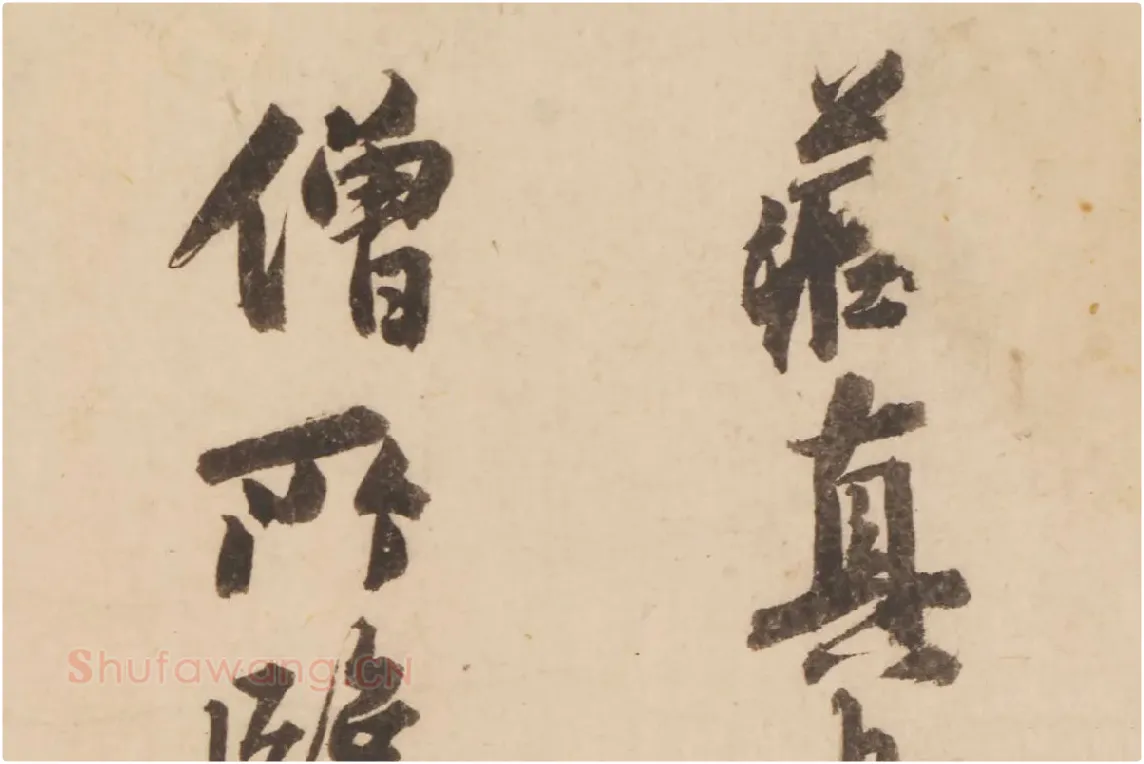 莊真
僧所
Shufawang.CN